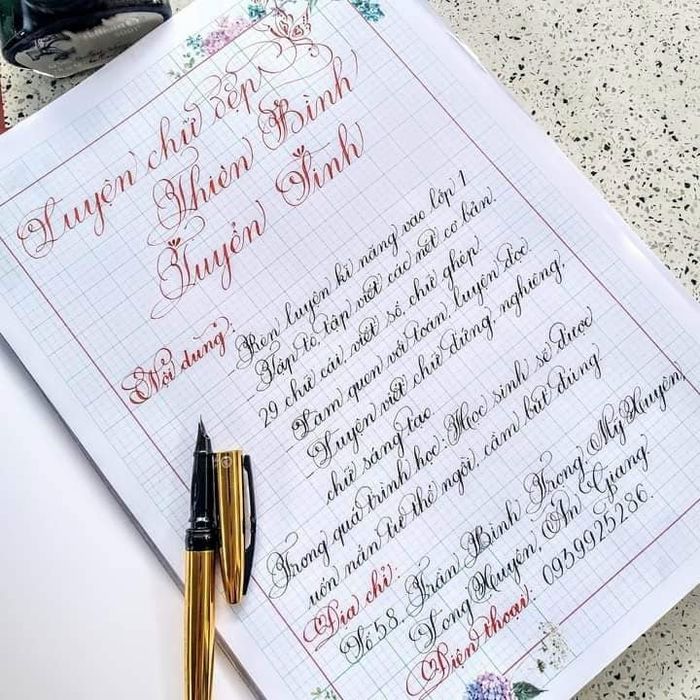 Luyện chữ đẹp
Thiên Bình
Tuyển Sinh
Nội dung:
Rèn luyện kĩ năng vào lớp 1
Tập tô, tập viết các nét cơ bản.
29 chữ cái, viết số, chữ ghép
Làm quen với toán, luyện đọc
Luyện viết chữ đứng, nghiêng,
chữ sáng tạo.
Trong quá trình học: Học sinh sẽ được
uốn nắn tư thế ngồi, cầm bút đúng
Địa chỉ:
Số 58, Trần Bình Trọng, Mỹ Xuyên,
Long Xuyên, An Giang.
Điện thoại: 0939925286.